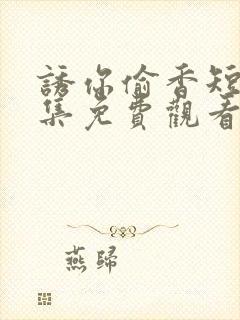 誘你偷香短
集免費觀看
燕歸